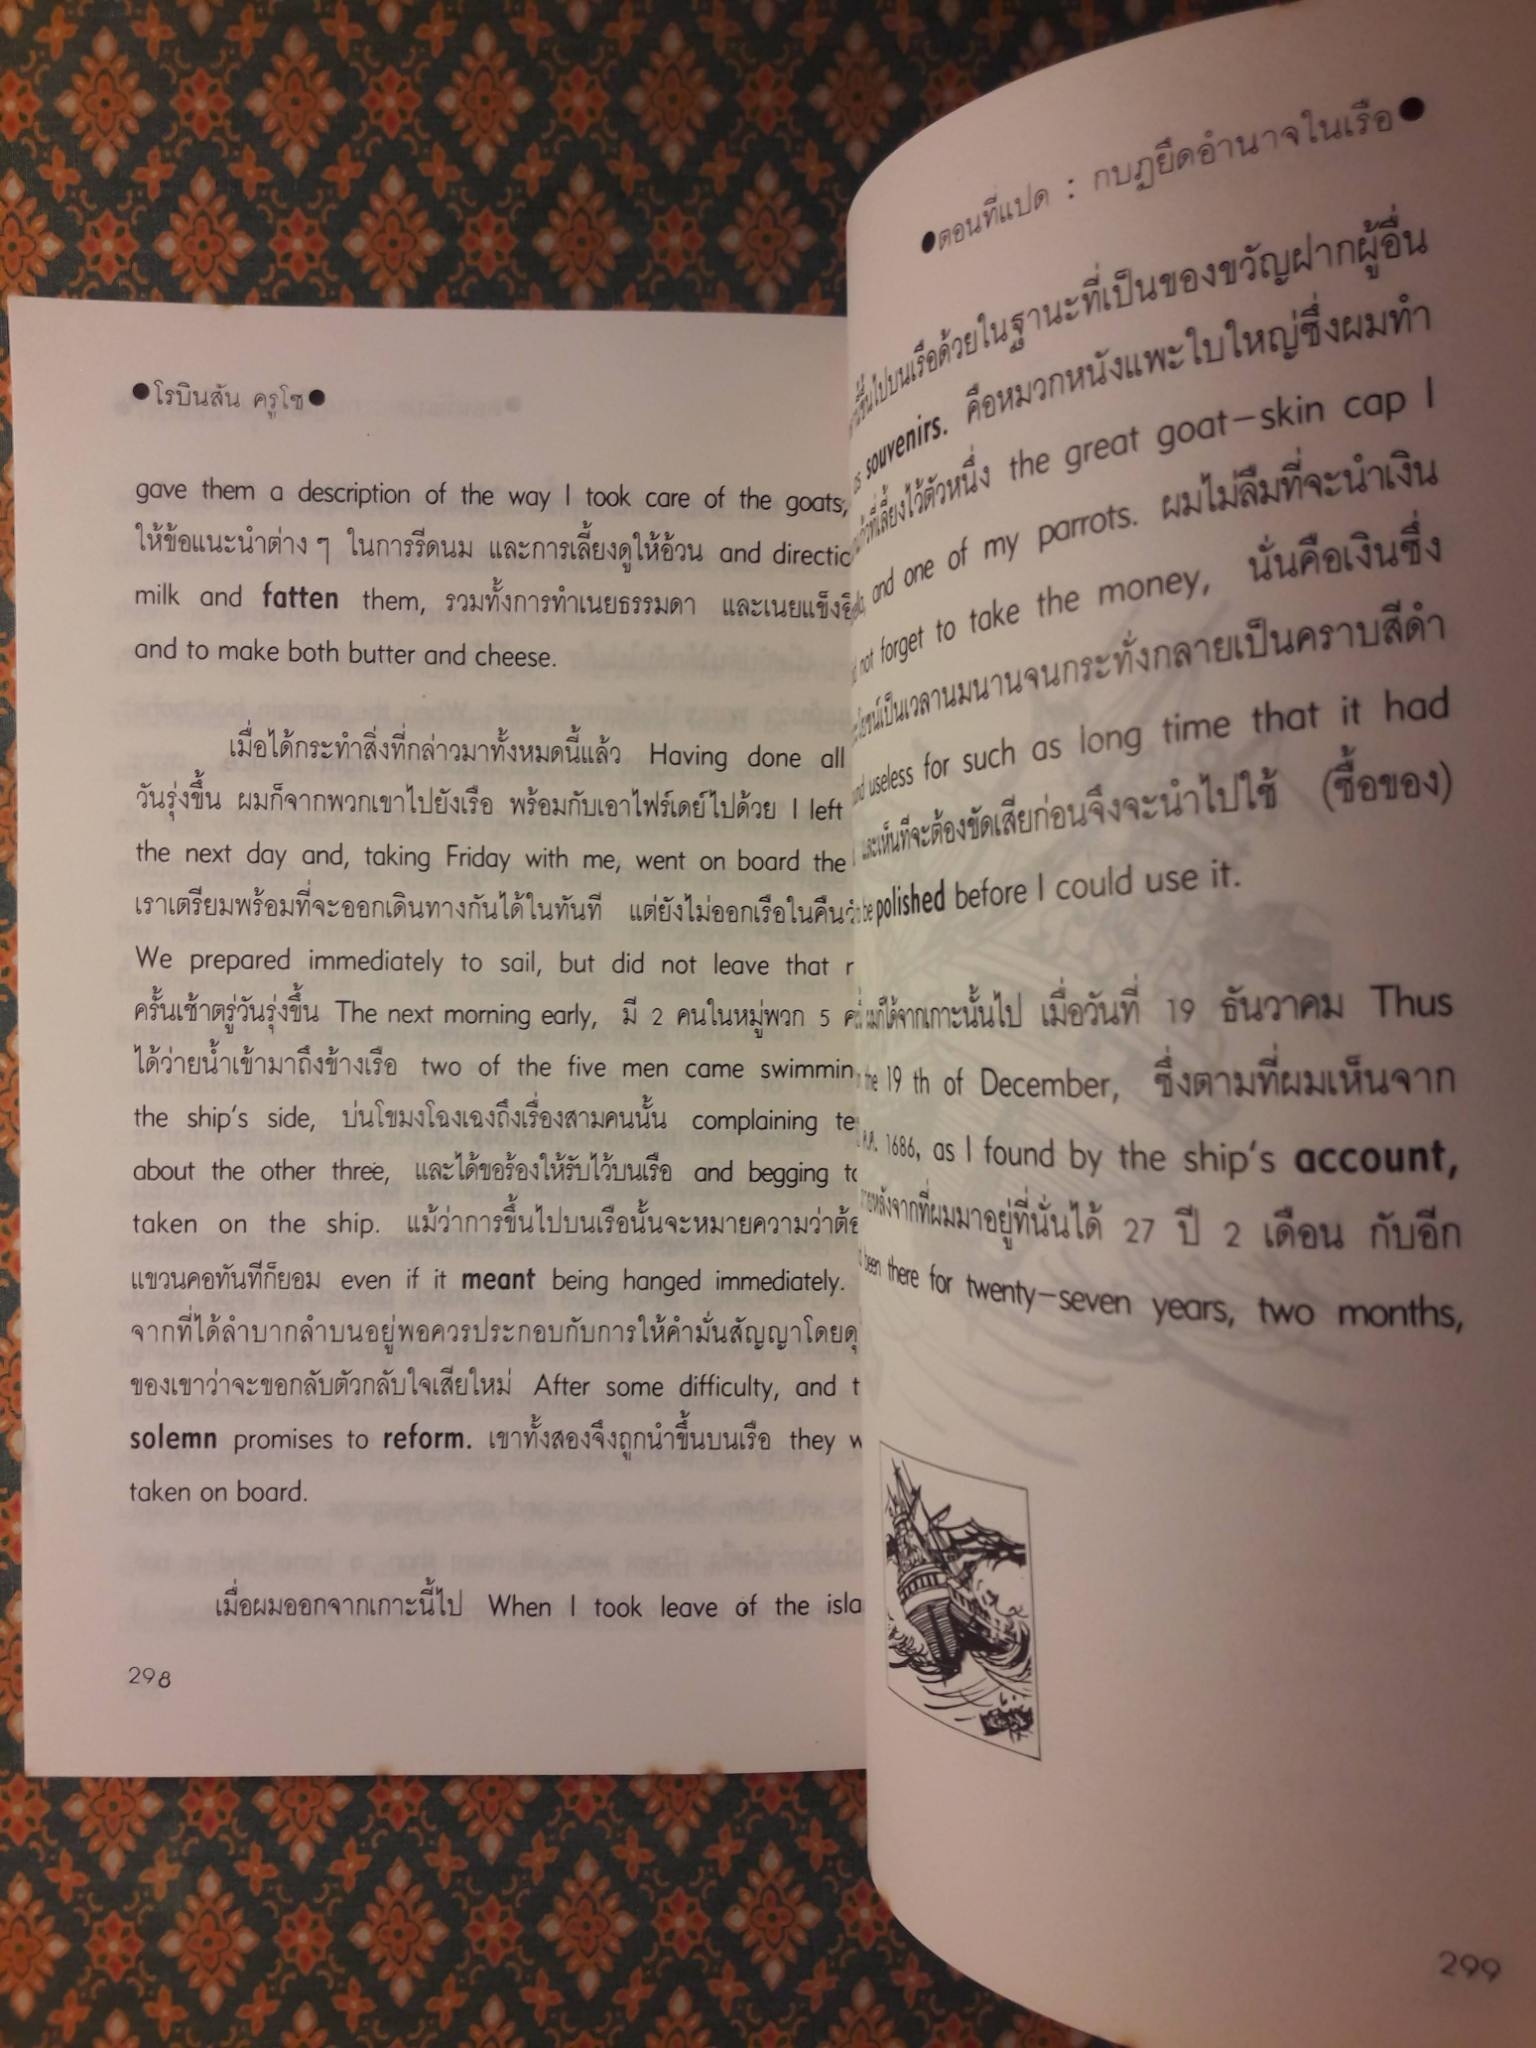 ●โรบินสัน ครูโซ●
gave them a description of the way I took care of the goats,
ให้ข้อแนะนำต่าง ๆ ในการรีดนม และการเลี้ยงดูให้อ้วน and
milk and fatten them, รวมทั้งการทำเนยธรรมดา และเนยแข็ง
and to make both butter and cheese.
เมื่อได้กระทำสิ่งที่กล่าวมาทั้งหมดนี้แล้ว Having done all
วันรุ่งขึ้น ผมก็จากพวกเขาไปยังเรือ พร้อมกับเอาไฟร์เดย์ไปด้วย I left
the next day and, taking Friday with me, went on board the
เราเตรียมพร้อมที่จะออกเดินทางกันได้ในทันที แต่ยังไม่ออกเรือในคืน
We prepared immediately to sail, but did not leave that
ครั้นเช้าตรู่วันรุ่งขึ้น The next morning early, มี 2 คนในหมู่พวก 5
ได้ว่ายน้ำเข้ามาถึงข้างเรือ two of the five men came
the ship's side, บ่นโขมงโฉงเฉงถึงเรื่องสามคนนั้น complaining
about the other three, และได้ขอร้องให้รับไว้บนเรือ and begging
taken on the ship. แม้ว่าการขึ้นไปบนเรือนั้นจะหมายความว่า
แขวนคอทันทีก็ยอม even if it meant being hanged immediately.
จากที่ได้ลำบากลำบนอยู่พอควรประกอบกับการให้คำมั่นสัญญาโดย
ของเขาว่าจะขอกลับตัวกลับใจเสียใหม่ After some difficulty, and
solemn promises to reform. เขาทั้งสองจึงถูกนำขึ้นบนเรือ they
taken on board.
เมื่อผมออกจากเกาะนี้ไป When I took leave of the
298
●ตอนที่แปด : กบฏยึดอำนาจในเรือ●
ขึ้นไปบนเรือด้วยในฐานะที่เป็นของขวัญฝากผู้อื่น
souvenirs. คือหมวกหนังแพะใบใหญ่ซึ่งผมทำ
ที่เลี้ยงไว้ตัวหนึ่ง the great goat-skin cap I
and one of my parrots. ผมไม่ลืมที่จะนำเงิน
not forget to take the money, นั่นคือเงินซึ่ง
เป็นเวลานมนานจนกระทั่งกลายเป็นคราบสีดำ
useless for such as long time that it had
และเห็นที่จะต้องขัดเสียก่อนจึงจะนำไปใช้ (ซื้อของ)
be polished before I could use it.
ผมก็ได้จากเกาะนั้นไป เมื่อวันที่ 19 ธันวาคม Thus
the 19 th of December, ซึ่งตามที่ผมเห็นจาก
1686, as I found by the ship's account,
หลังจากที่ผมมาอยู่ที่นั่นได้ 27 ปี 2 เดือน กับอีก
been there for twenty-seven years, two months,
299